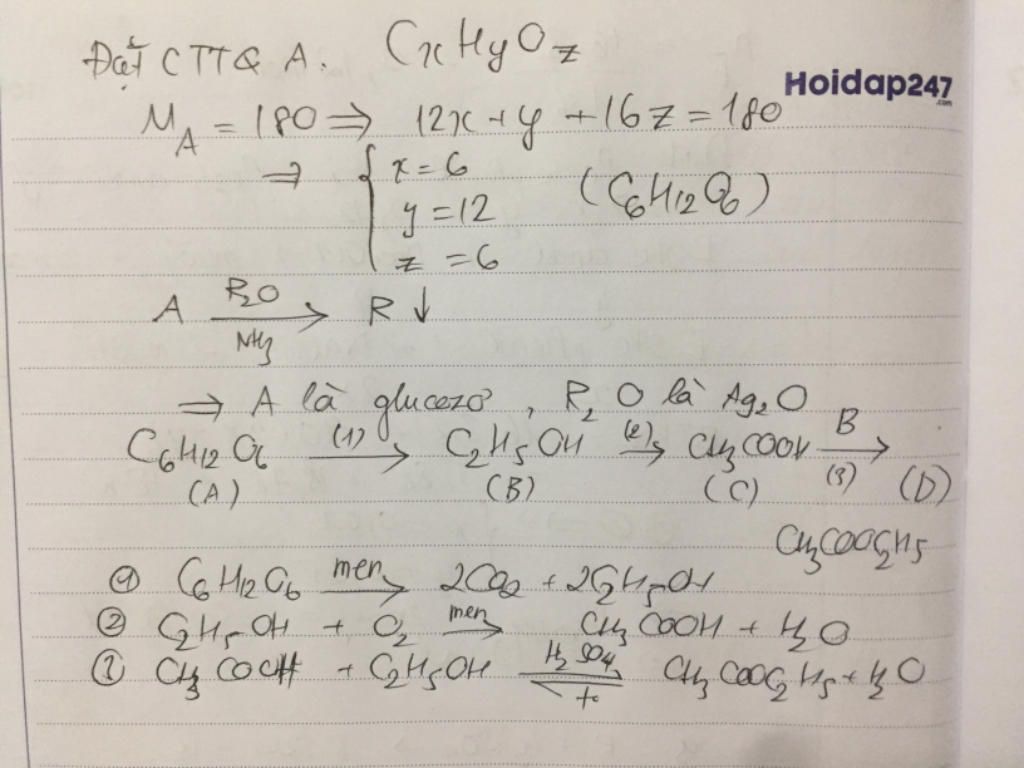 Đặt CTTQ A: CxHyOz
Hoidap247
.com
M_A = 180 ⇒ 12x + y + 16z = 180
⇒ { x = 6
y = 12 (C6H12O6)
z = 6
A R2O/NH3 → R ↓
⇒ A là glucozơ, R2O là Ag2O
C6H12O6 (1) → C2H5OH (2) → CH3COOH B/(3) →
(A) (B) (C) (D)
CH3COOC2H5
① C6H12O6 men → 2CO2 + 2C2H5OH
② C2H5OH + O2 men → CH3COOH + H2O
CH3COOH + C2H5OH H2SO4/t° ⇌ CH3COOC2H5 + H2O